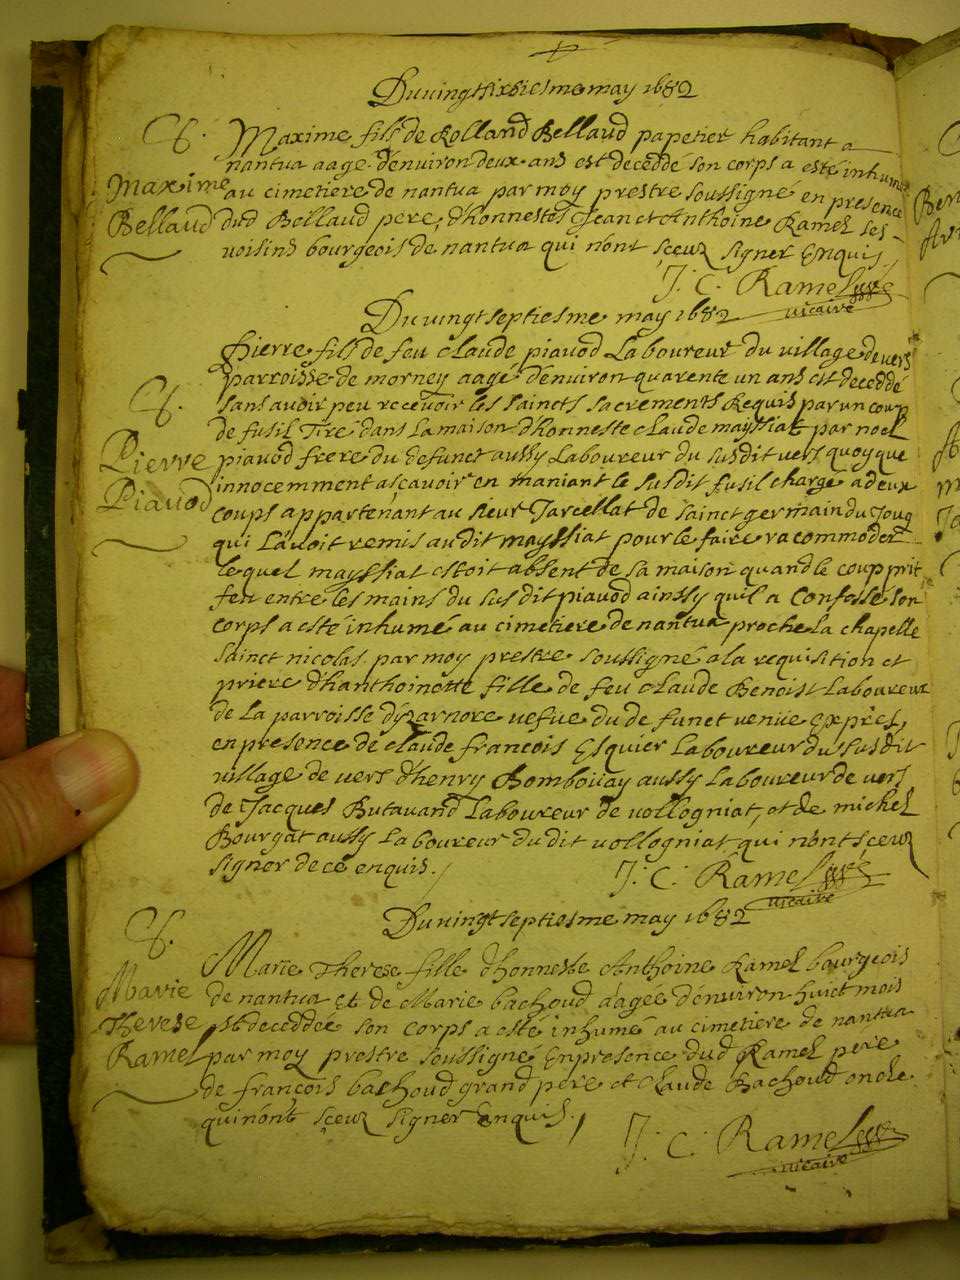 Du vingt sixiesme may 1682
S. Maxime fils de Rolland Bellaud papetier habitant a
nantua aagé d'environ deux ans est decedde son corps a esté inhumé
Maxime au cimetiere de nantua par moy prestre soussigné en presence
Bellaud dud Bellaud pere, d'honnestes Jean et Anthoine Ramel ses
voisins bourgeois de nantua qui n'ont sceuz signer Enquis
J. C. Ramel
vicaire
Du vingt septiesme may 1682
Pierre fils de feu Claude piavod Laboureur du village de vers
parroisse de morney aagé d'environ quarente un ans est deceddé
S. sans avoir peu recevoir les saincts sacrements Requis par un coup
de fusil Tiré dans La maison d'honneste Claude mayssiat par noel
Pierre piavod frere du defunct aussy Laboureur du susdit vers quoyque
Piavod innocemment ascavoir en maniant le susdit fusil chargé a deux
coups appartenant au sieur Jarcellat de sainct germain du Joug
qui L'avoit remis audit mayssiat pour le faire racommoder
lequel mayssiat estoit absent de sa maison quand le coup prit
feu entre les mains du susdit piavod ainssy qu'il a Confessé son
corps a esté inhumé au cimetiere de nantua proche La chapelle
sainct nicolas par moy prestre soussigné a la requisition et
priere d'hanthoinette fille de feu Claude Benoist Laboureur
de La parroisse d'yzarnore vefve du defunct venüe Exprès,
en presence de Claude françois Esquier Laboureur du susdit
village de vers d'henry Bombouay aussy Laboureur de vers
de Jacques Butavand Laboureur de vollogniat, et de michel
Bourgat aussy Laboureur dudit vollogniat, qui n'ont sceuz
signer de ce enquis.
J. C. Ramel
vicaire
Du vingt septiesme may 1682
S. Marie Therese fille d'honneste Anthoine Ramel bourgeois
Marie de nantua et de Marie bachoud aagée d'environ huict mois
Therese est deceddée son corps a esté inhumé au cimetiere de nantua
Ramel par moy prestre soussigné En presence dud Ramel pere
de françois bachoud grand pere et Claude Bachoud oncle
qui n'ont sceuz signer Enquis.
J. C. Ramel
vicaire